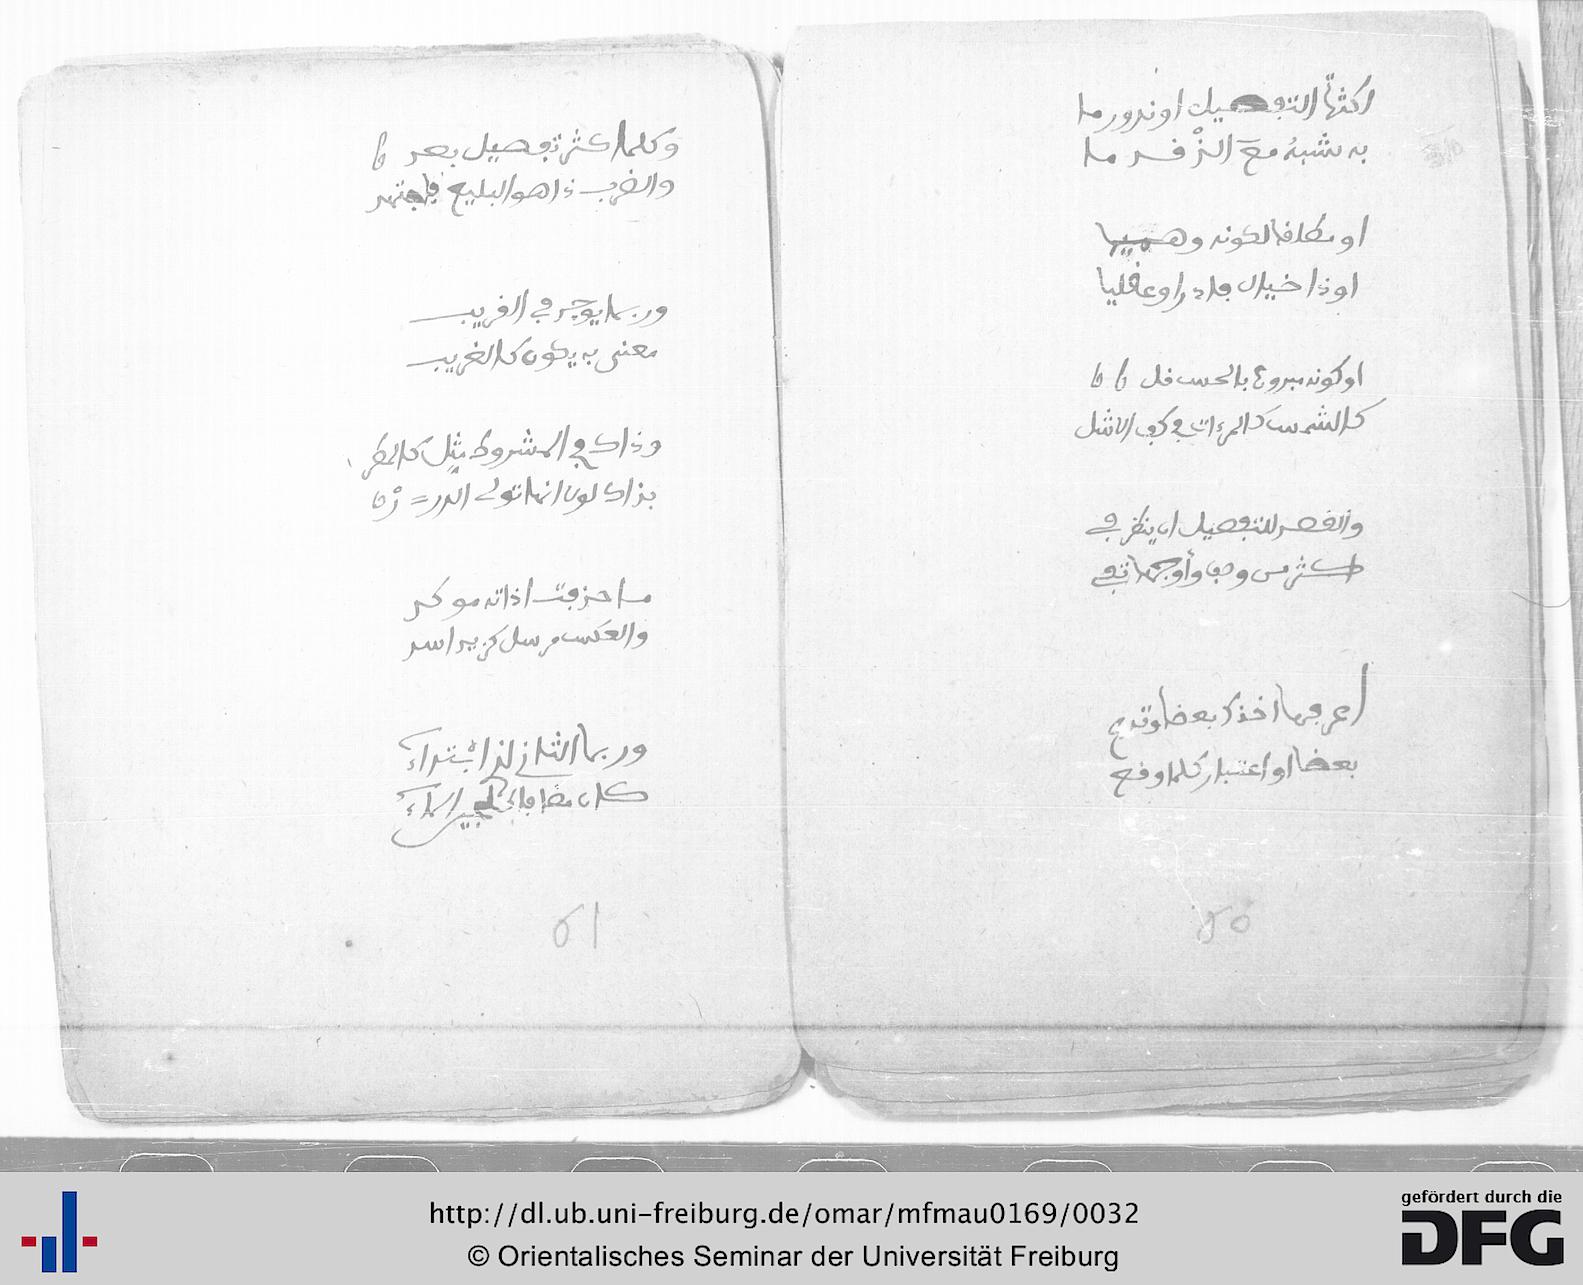 لكثرة التفصيل او ندور ما
به يشبه مع الذى قد ما
او مطلقا لكونه وهميا
او ذا خيال فادر او عقليا
او كونه مروع بالحس قل
كالشمس كالمرءات فى كف الاشل
والقصد للتفصيل ان ينظر فى
كثر من وصف وأوجها تفى
اعرفها اخذك بعضا وتدع
بعضا او اعتبار كلما وقع
60
وكلما كثر تفصيل بعد
والضرب ذا هو البليغ فاجتهد
وربما يوجد فى القريب
معنى به يكون كالغريب
وذاك فى المشروط مثل كالمطر
بذاك لون انها تولى الدرر
ما حذفت اداته موكد
والعكس مرسل كزيد اسد
وربما الثانى لذا ابتداء
كان مضافا الى الماء
61
http://dl.ub.uni-freiburg.de/omar/mfmau0169/0032
© Orientalisches Seminar der Universität Freiburg
gefördert durch die
DFG